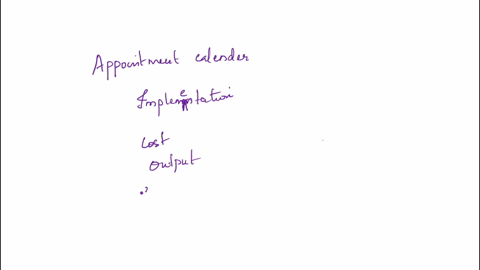 Appointment calender
Implementation
cost
output